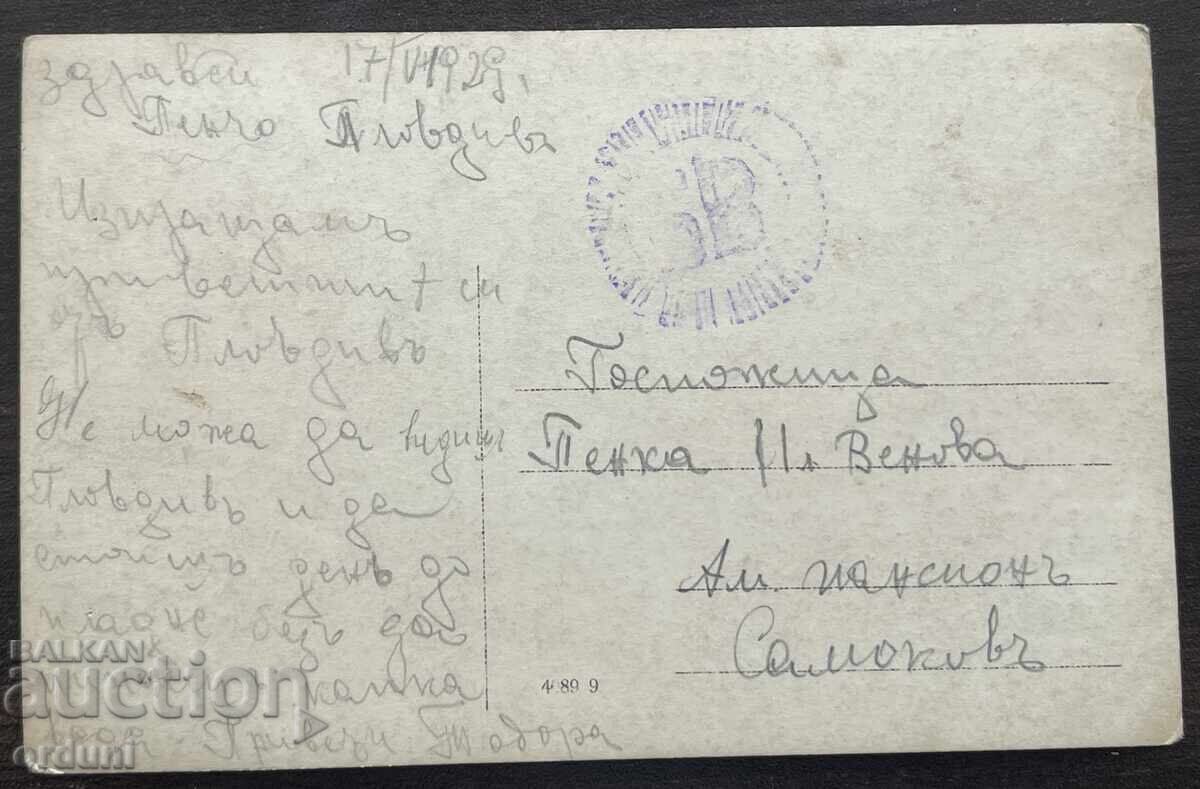 здравей 17/VI 1929,
Пенчо Пловдивъ
Изпращамъ
приветит си
изъ Пловдивъ
Не можа да видишъ
Пловдивъ и да
стоишъ день до
пладне безъ да
капка
Привети Тодора
Госпожица
Пенка Ил Венова
Ам. пансионъ
Самоковъ
4899
BALKAN
auction
orduni